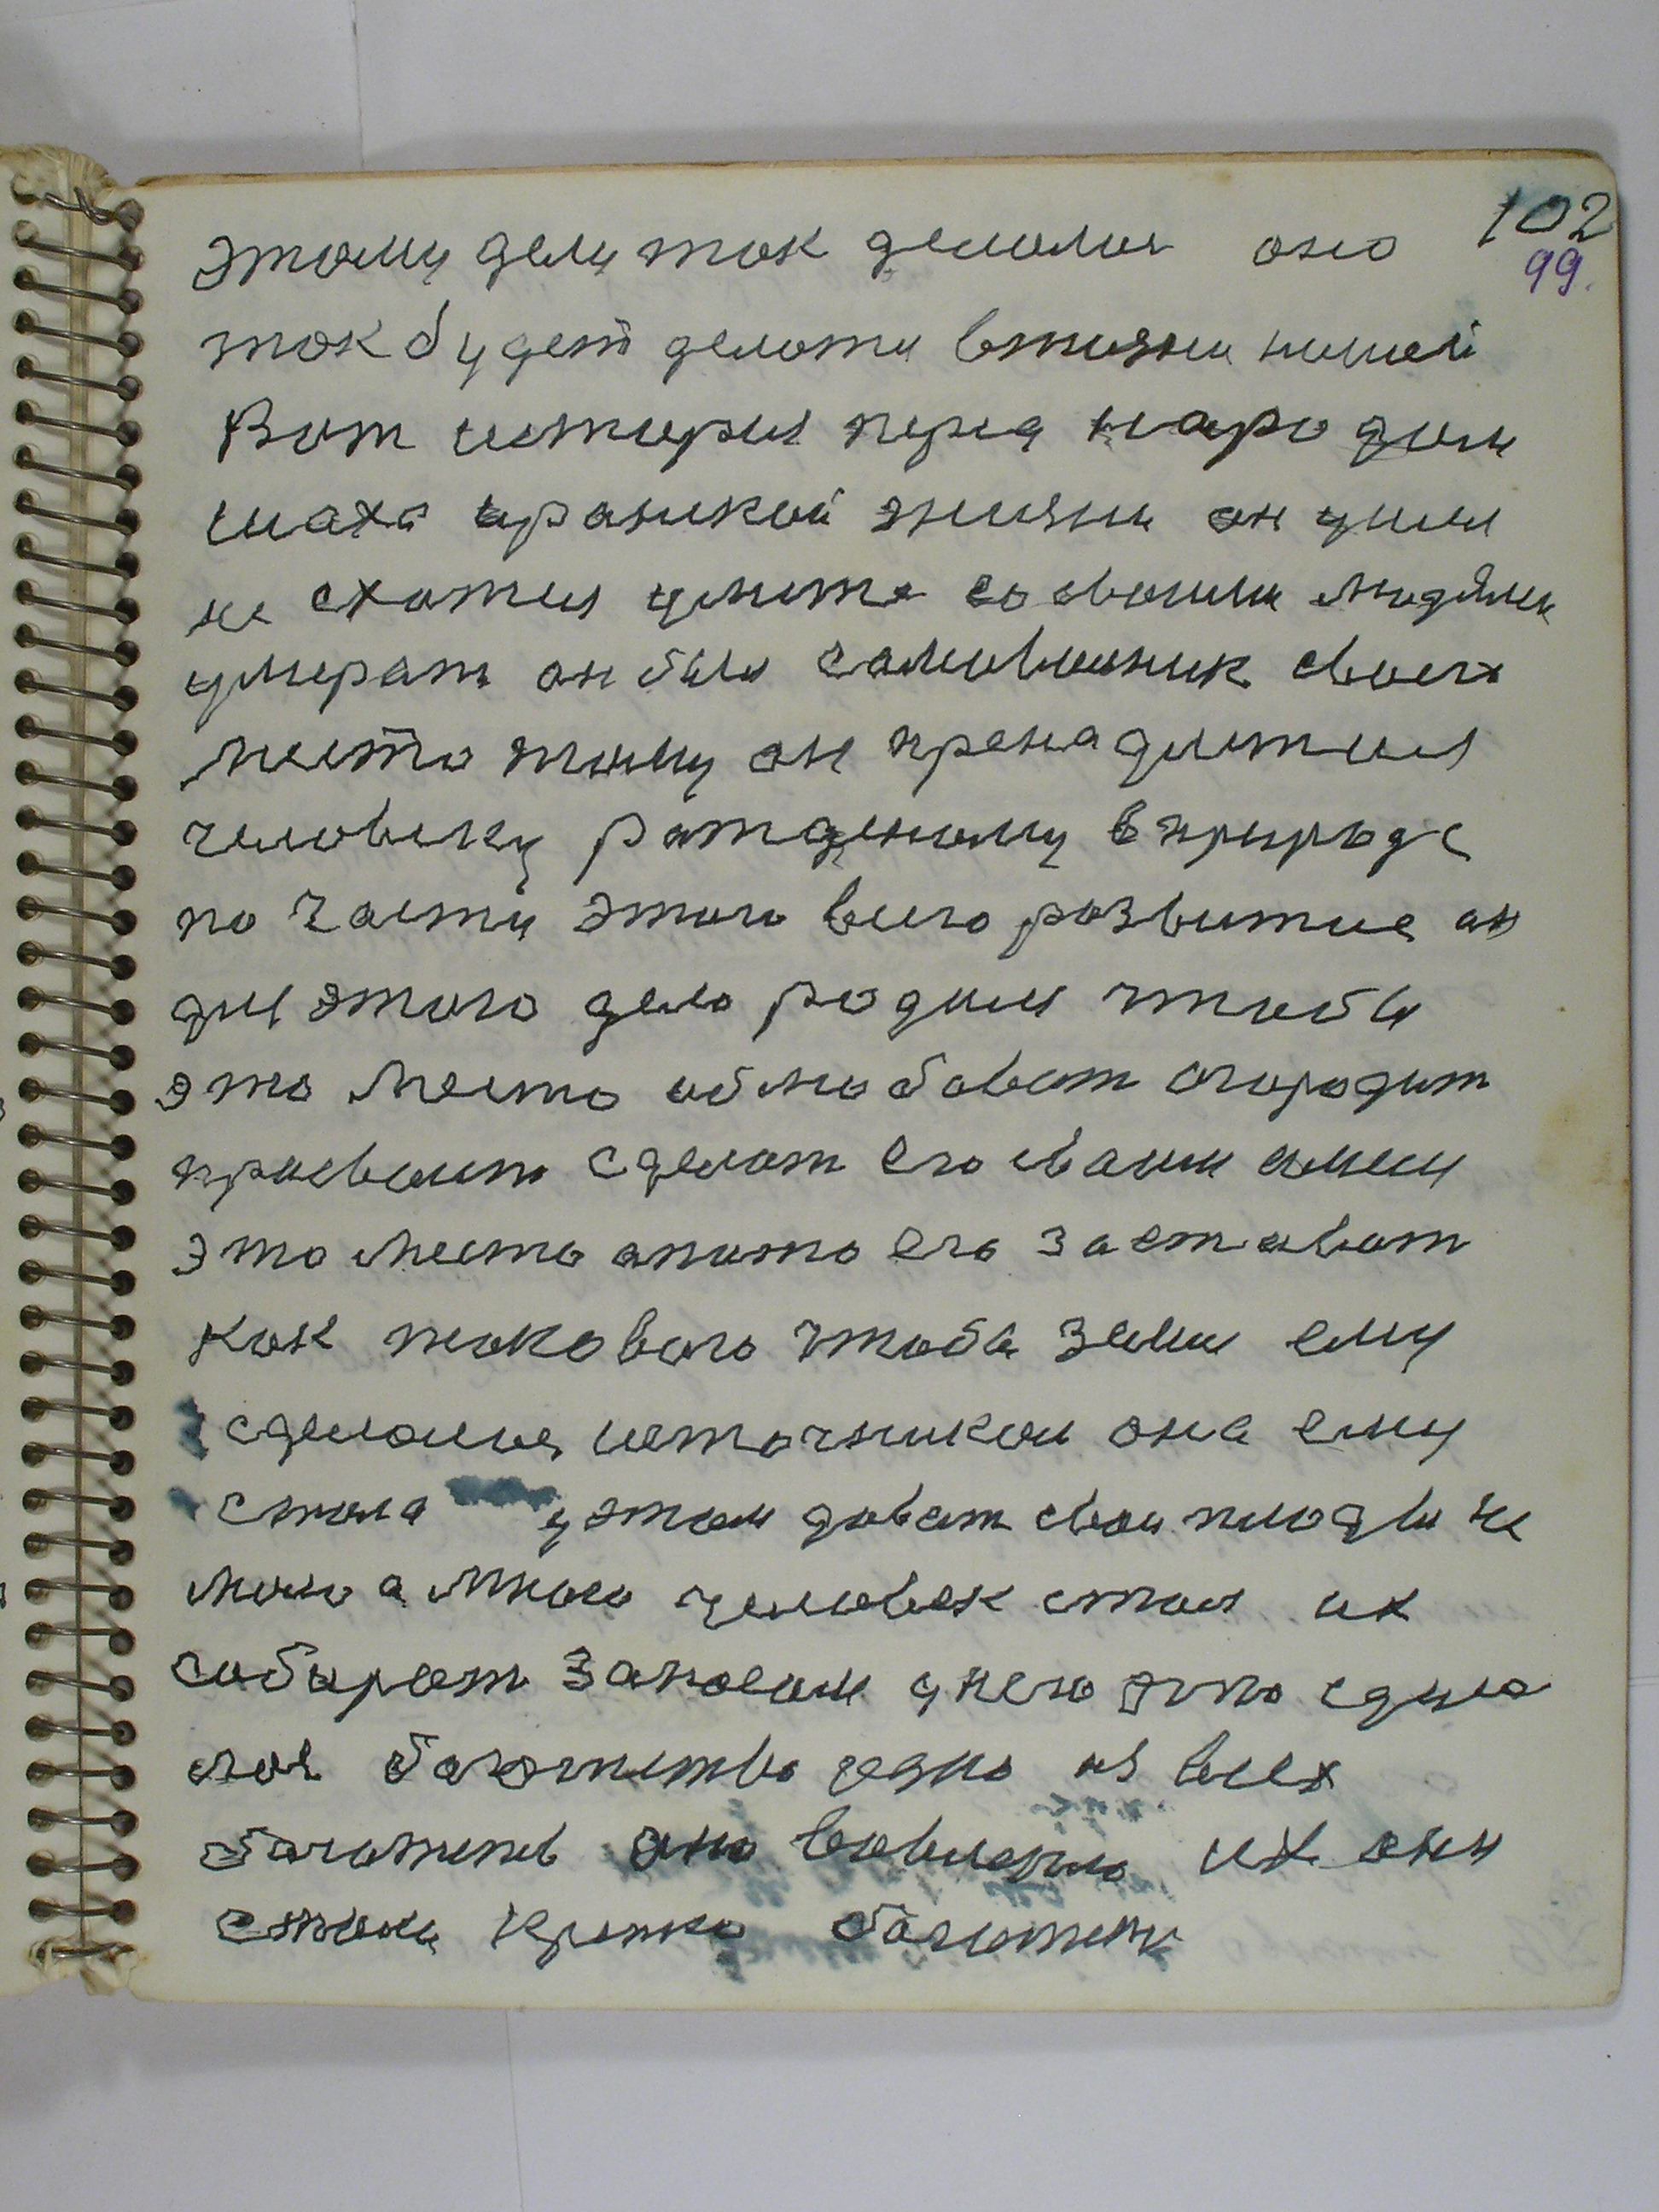 102
99.
этому делу так делалось оно
так будет делоти вжизни нашей
Вот история перед народом
шаха иранской жизни он ушел
не схотел умите со своими людями
умерат он был самовик своего
место тому он пренадлежал
человеку рожденому в природе
по части этого всего развитие он
для этого дело родился чтобы
это место облюбоват огородит
присвоит сделат его своим имем
это место опято его заставит
как токового чтобы земля ему
сделалась источником она ему
стала у этом дават свои плоды не
мало а много человек стал их
собират запосом у него это сдела
лось богатство одно из всех
богатств оно их они
стали крепко богатет